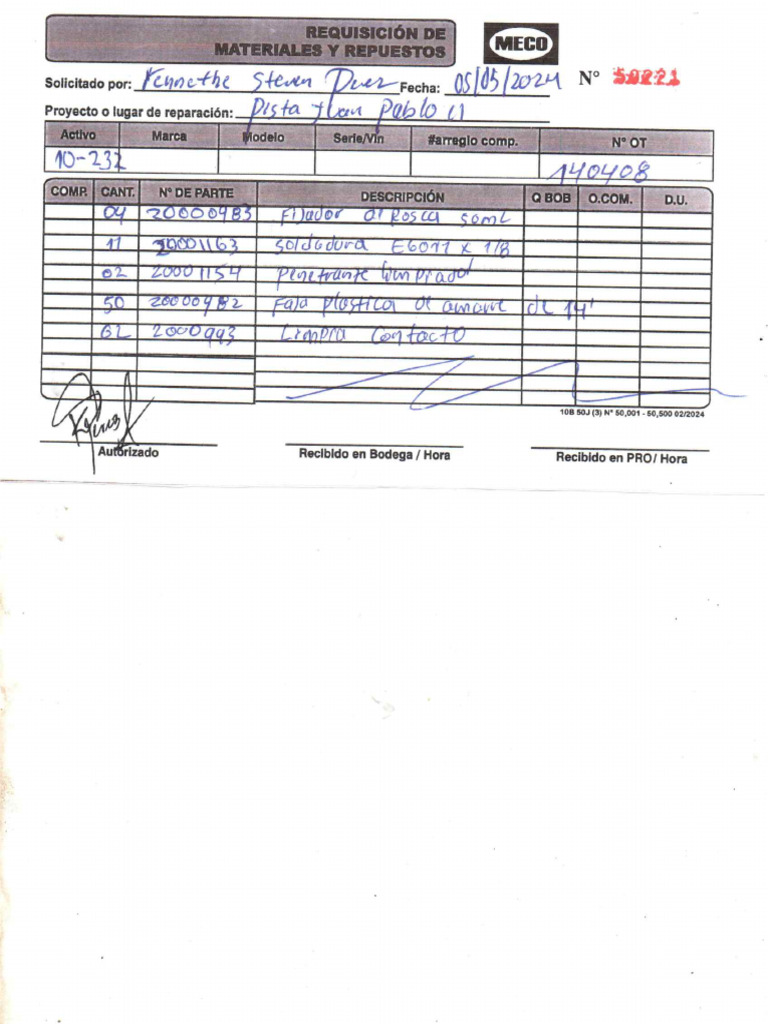 REQUISICIÓN DE
MATERIALES Y REPUESTOS
MECO
Solicitado por: Kennethe Steven Fecha: 05/05/2024 N° 50221
Proyecto o lugar de reparación: Pista Juan Pablo II
Activo Marca Modelo Serie/Vin #arreglo comp. N° OT
10-232 140408
COMP. CANT. N° DE PARTE DESCRIPCIÓN Q BOB O.COM. D.U.
04 20000983 Fijador d Rosca 50mL
11 20001163 Soldadura E6011 x 1/8
02 20001154 Penetrante
50 20000982 Faja plastica de amarre de 14'
02 2000993 Limpia Contacto
10B 50J (3) N° 50,001 - 50,500 02/2024
Autorizado Recibido en Bodega / Hora Recibido en PRO/ Hora